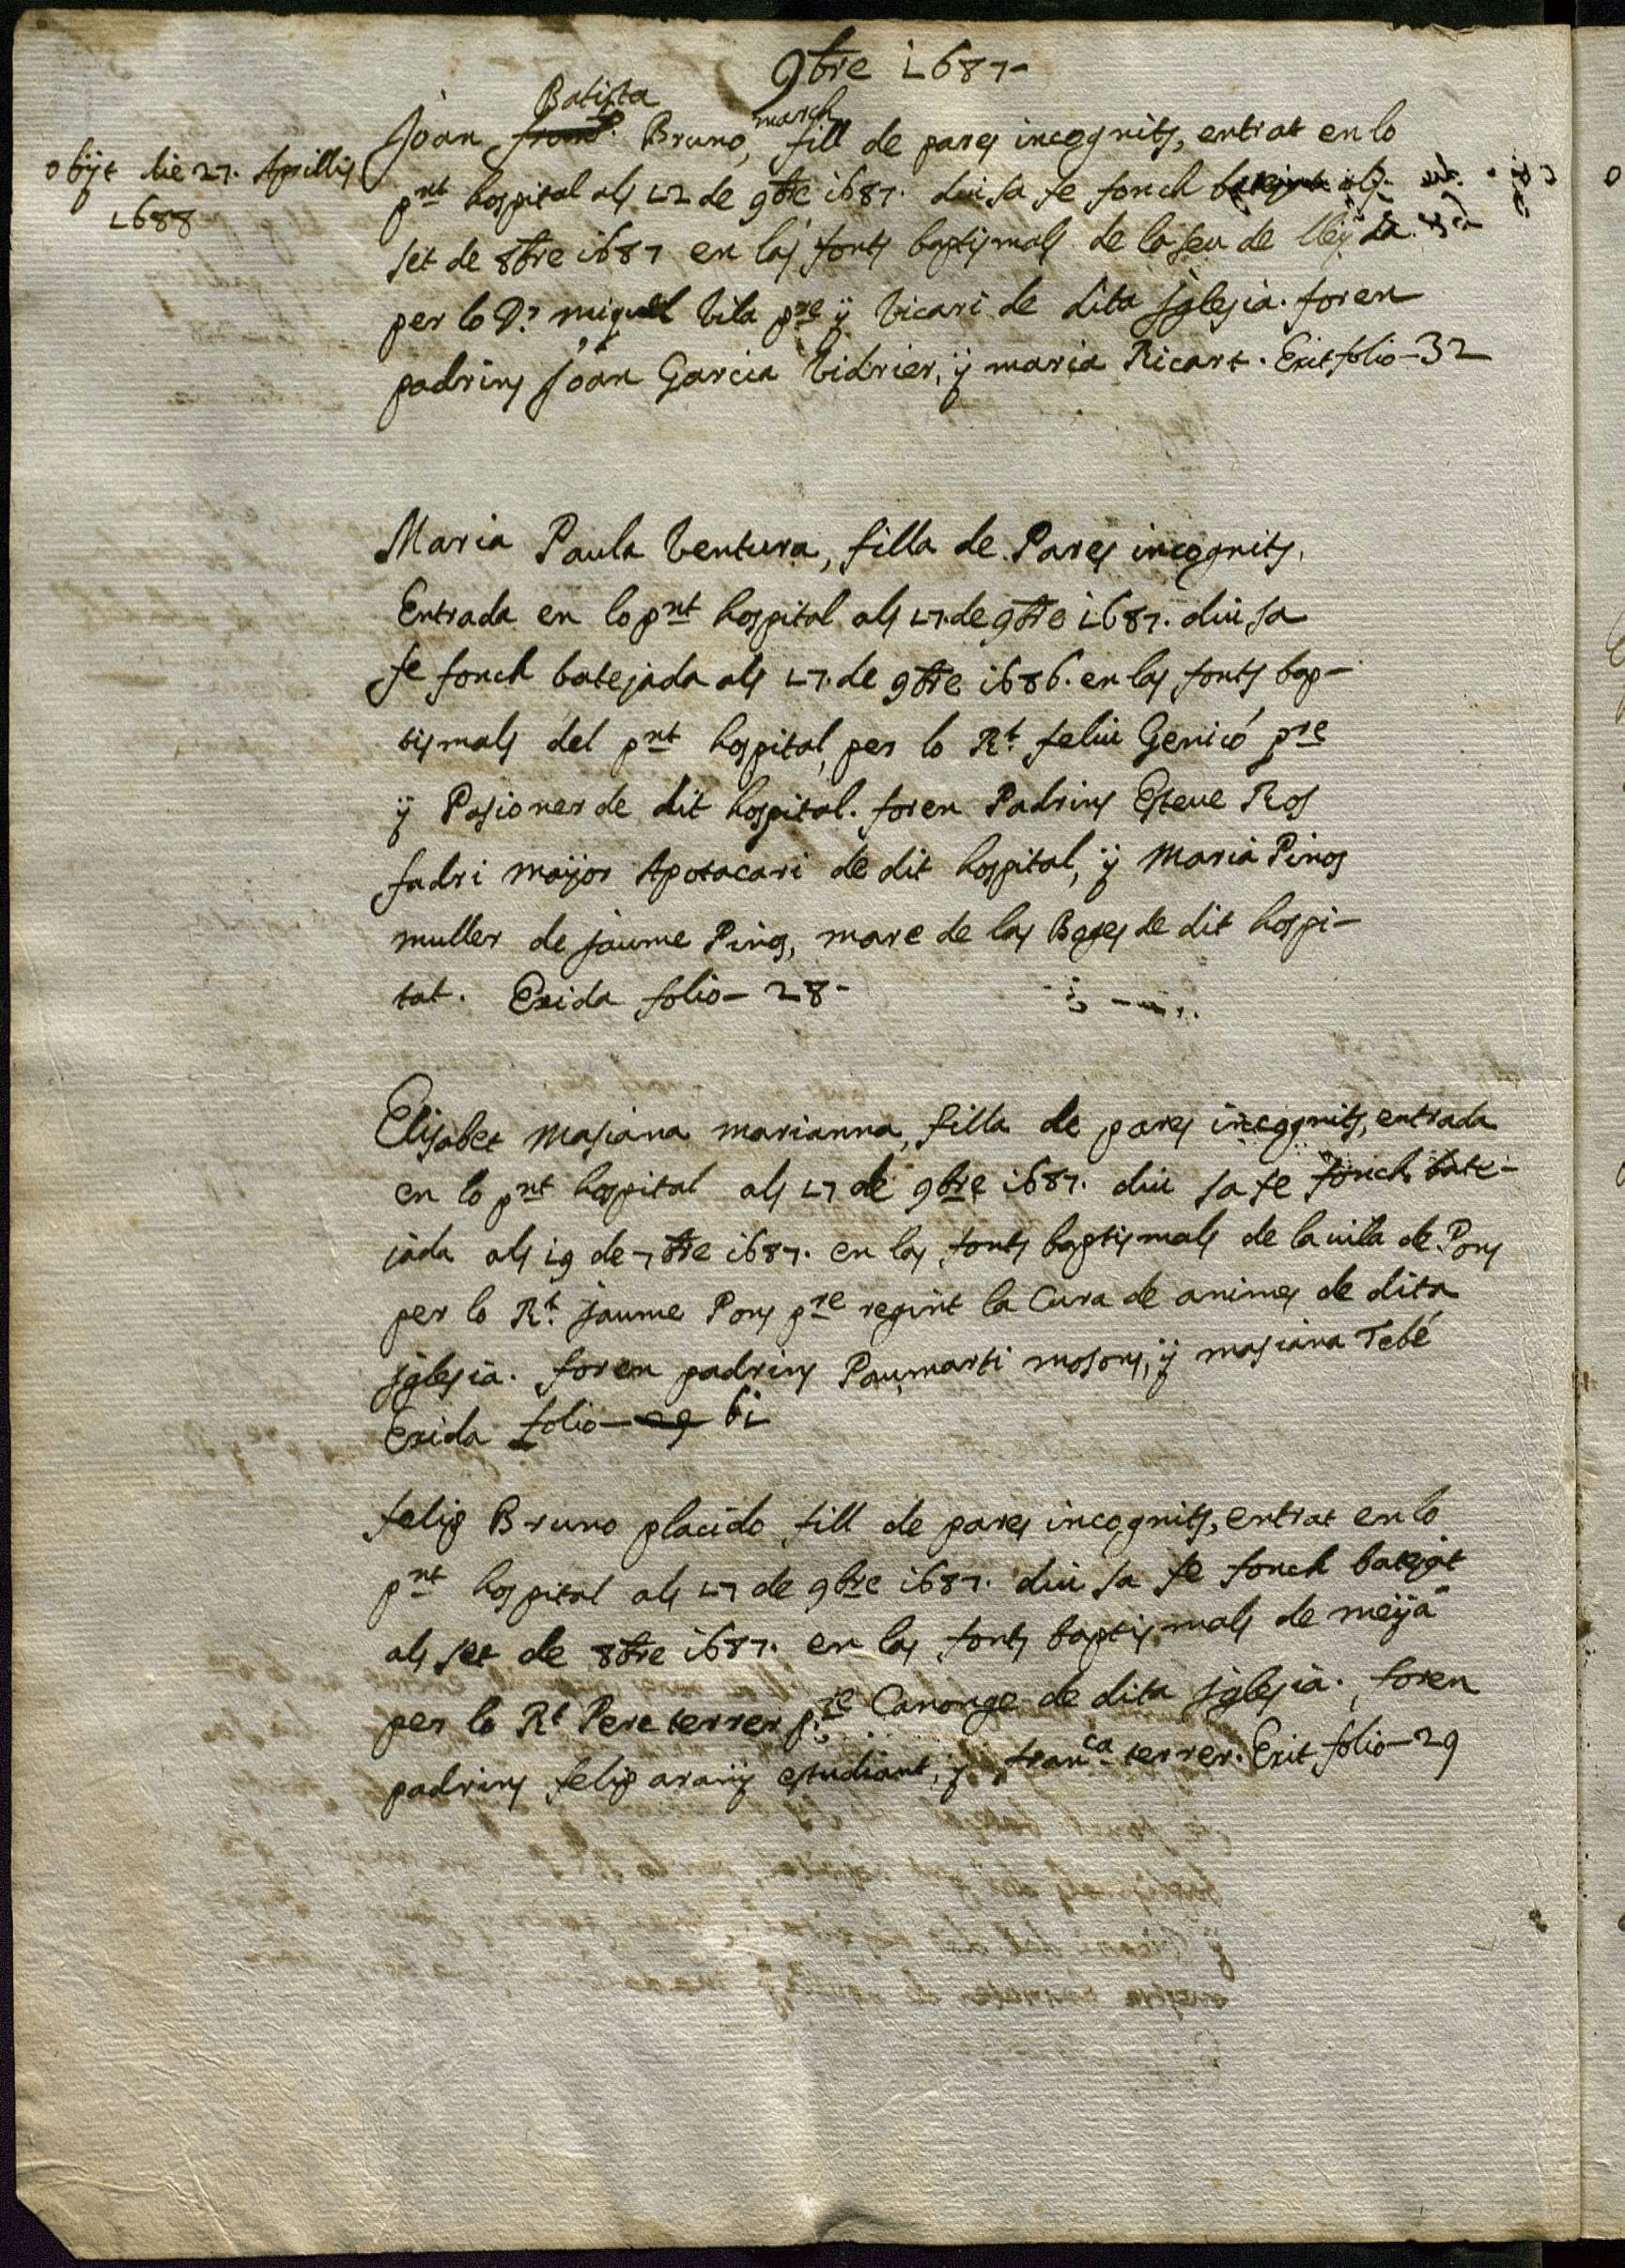 9bre 1687-
Batista
Joan Bruno, march fill de pares incognits, entrat en lo
obijt die 27. Aprillis
1688
pnt hospital als 12 de 9bre 1687. diu sa fe fonch batejat als
set de 8bre 1687 en las fonts baptismals de la seu de lleyda
per lo Dr. miquel Vila pre ÿ Vicari de dita Jglesia. foren
padrins Joan Garcia Vidrier, ÿ maria Ricart. Exit folio-32
Maria Paula Ventura, filla de Pares incognits,
Entrada en lo pnt hospital als 17. de 9bre 1687. diu sa
fe fonch batejada als 17. de 9bre 1686. en las fonts bap-
tismals del pnt hospital, per lo Rt. feliu Genicó pre
ÿ Pasioner de dit hospital. foren Padrins Esteue Ros
fadri maijor Apotacari de dit hospital, ÿ Maria Pinos
muller de jaume Pinos, mare de las Bojes de dit hospi-
tat. Exida folio- 28-
Elisabet Masiana marianna, filla de pares incognits, entrada
en lo pnt hospital als 17 de 9bre 1687. diu sa fe fonch bate-
jada als 19 de 7bre 1687. en las fonts baptismals de la vila de Pons
per lo Rt. jaume Pons pre regint la Cura de animes de dita
jglesia. foren padrins Pau marti mosons, ÿ masiana Tebé
Exida folio- 29 61
felip Bruno placido fill de pares incognits, entrat en lo
pnt hospital als 17 de 9bre 1687. diu sa fe fonch batejat
als set de 8bre 1687. en las fonts baptismals de meÿa
per lo Rt Pere terrer pre Canonge de dita jglesia. foren
padrins felip aranÿ estudiant, ÿ franca terrer. Exit folio-29